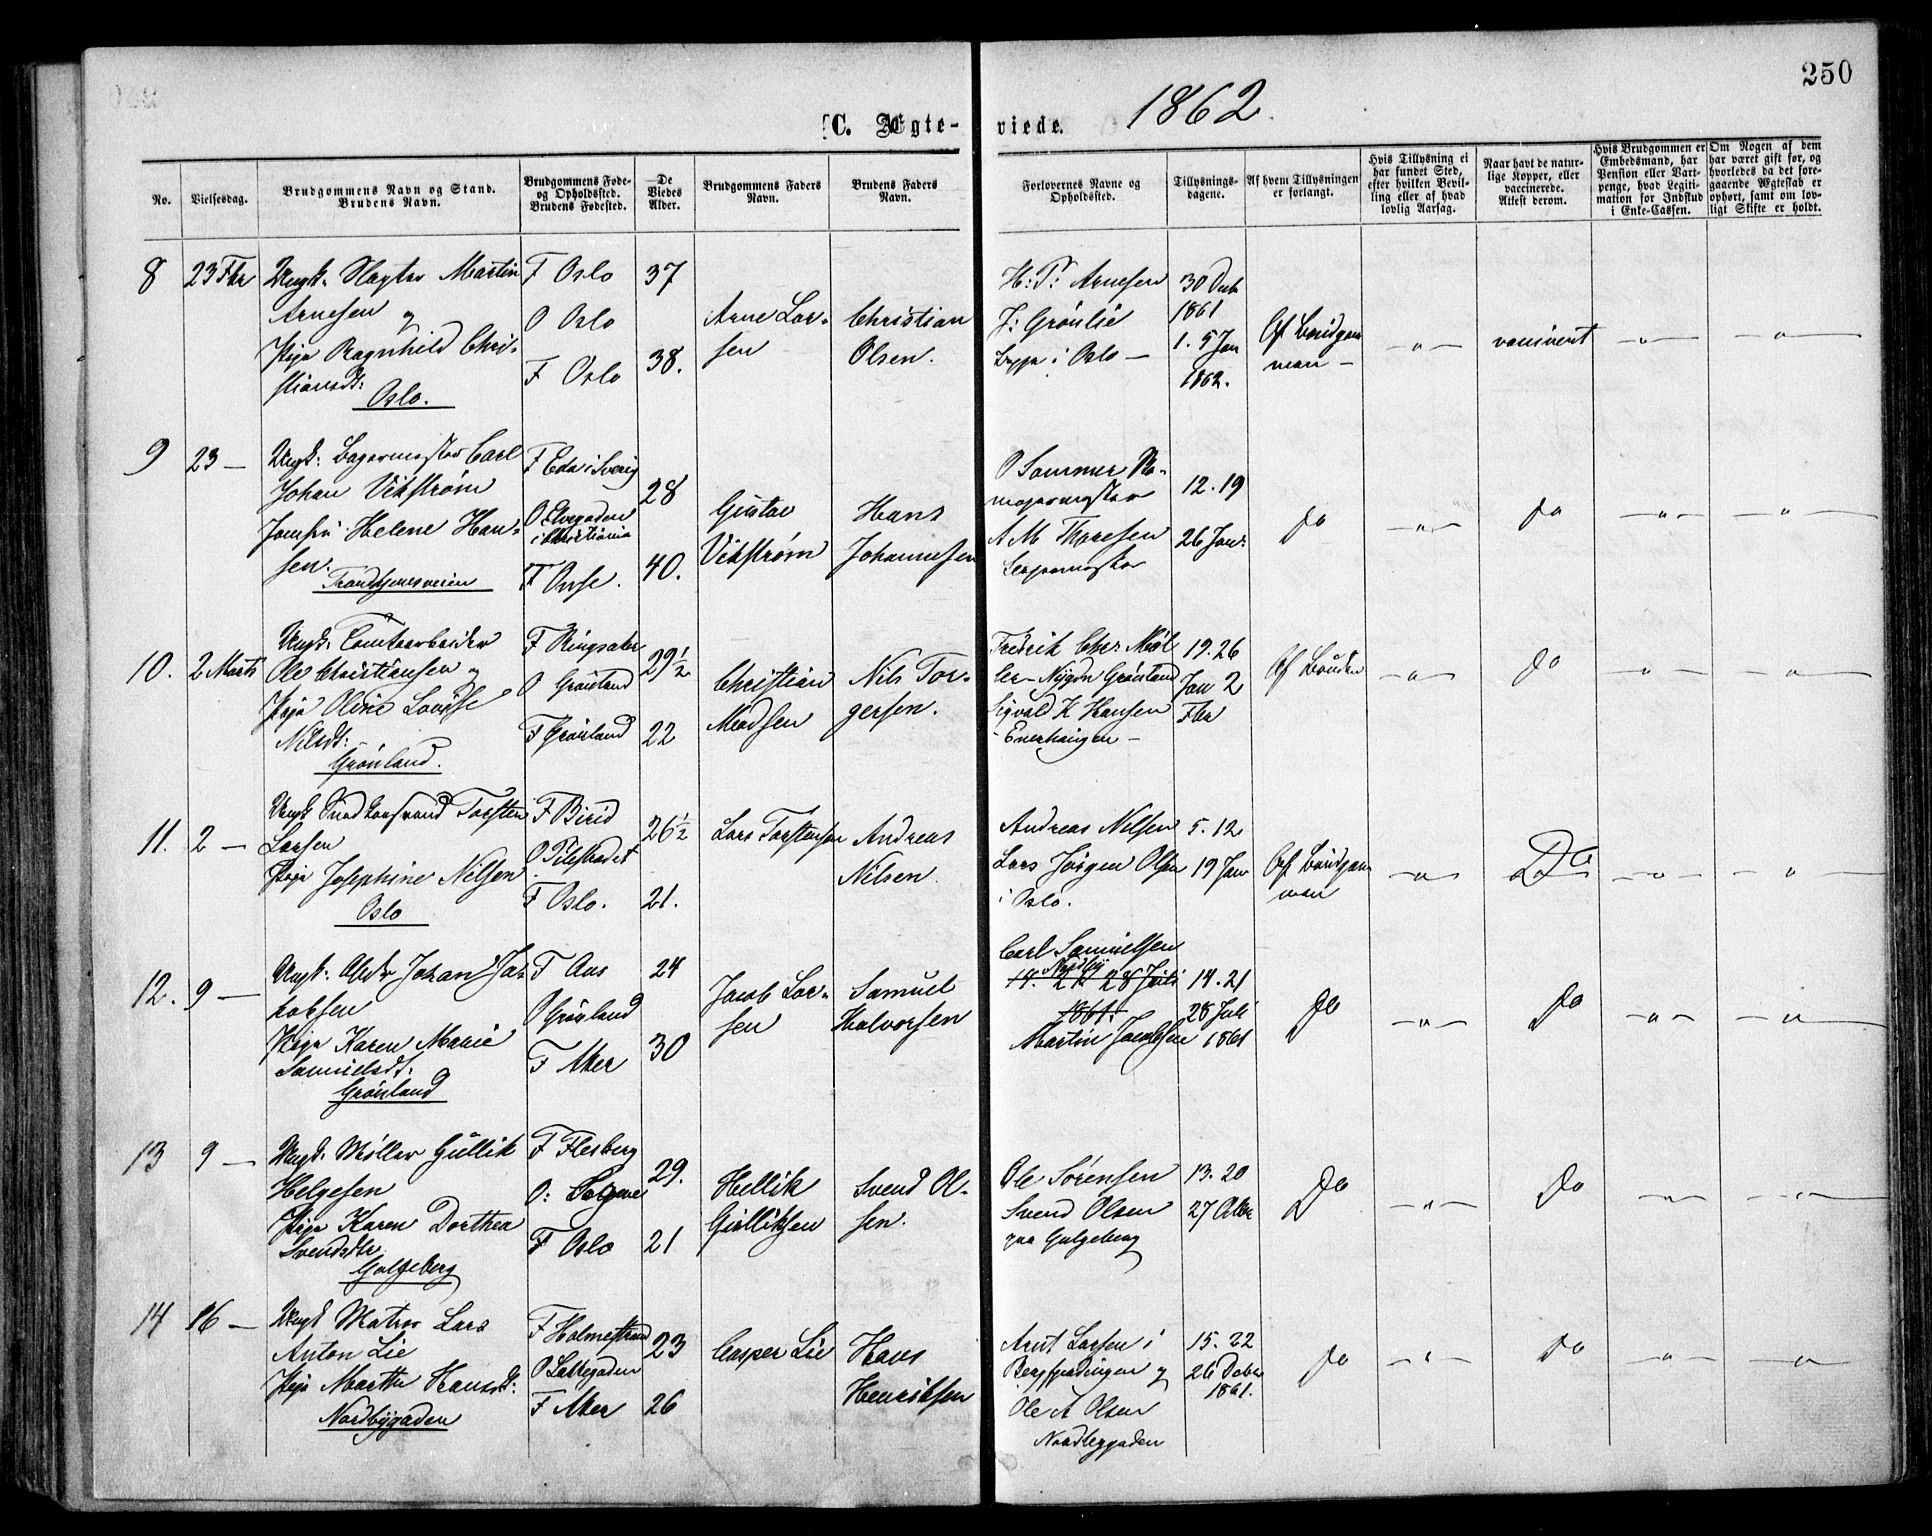 250
1862.
C. Ægte-
viede.
No.
Vielsesdag.
Brudgommens Navn og Stand.
Brudens Navn.
Brudgommens Føde-
og Opholdssted.
Brudens Fødested.
De
Viedes
Alder.
Brudgommens Faders
Navn.
Brudens Faders
Navn.
Forlovernes Navne og
Opholdssted.
Tillysnings-
dagene.
Af hvem Tillysningen
er forlangt.
Hvis Tillysning ei
har fundet Sted,
efter hvilken Bevil-
ling eller af hvad
lovlig Aarsag.
Naar havt de natur-
lige Kopper, eller
vaccinerede.
Attest derom.
Hvis Brudgommen er
Embedsmand, har
Pension eller Vart-
penge, hvad Legiti-
mation for Indskud
i Enke-Cassen.
Om Nogen af dem
har været gift før, og
hvorledes da det fore-
gaaende Ægteskab er
ophørt, samt om lov-
ligt Skifte er holdt.
8
23 Fbr
Ungk: Slagter Martin
Arnesen og
Pige Ragnhild Chri-
stiansdt:
Oslo.
F Oslo
O Oslo
F Oslo
37
38.
Arne Lar-
sen
Christian
Olsen.
H: P: Arnesen
J: Grønlie
begge i Oslo —
30 Decb
1861
1. 5 Jan
1862.
Af Brudgom
men —
— " —
vaccineret
— " —
— " —
9
23 —
Ungk: Bagermester Carl
Johan Vikstrøm
Jomfru Helene Han-
sen.
Trondhjemsveien
F Eda i Sverig
O Elvegaden
i Christiania
F Onsø.
28
40.
Gustav
Vikstrøm
Hans
Johannesen
O Sommer
A M Thoresen
12. 19
26 Jan:
Do
— " —
Do
— " —
— " —
10.
2 Marts
Ungk: Tomtearbeider
Ole Christiansen og
Pige Oline Lovise
Nilsdt:
Grønland.
F Ringsaker
O Grønland
F Grønland
29½
22
Christian
Madsen
Nils Tor-
gersen.
Fredrik Chr Møl
ler — Nygdn Grønland
Sigvald K Hansen
i Enerhaugen —
19. 26
Jan 2
Fbr
Af Bruden
— " —
Do
— " —
— " —
11.
2 —
Ungk Torsten
Larsen
Pige Josephine Nilsen
Oslo
F Birid
O Pilestrædet
F Oslo.
26½
21.
Lars Torstensen
Andreas
Nilsen.
Andreas Nilsen
Lars Jørgen Olsen
i Oslo.
5. 12
19 Jan
Af Brudgom
men
— " —
Do
— " —
— " —
12.
9 —
Ungk: Johan Ja-
kobsen
Pige Karen Marie
Samuelsdt:
Grønland
F Aas
O Grønland
F Aker
24
30
Jacob Lar-
sen
Samuel
Halvorsen
Carl Samuelsen
Nordby
14. 21 28 Juli
1861.
Martin Jacobsen
14. 21
28 Juli
1861
Do
— " —
Do
— " —
— " —
13
9 —
Ungk: Møller Gullik
Helgesen
Pige Karen Dorthea
Svendsdtr.
Galgeberg
F Flesberg
O:
F Oslo
29.
21
Hellik
Gulliksen
Svend Ol-
sen.
Ole Sørensen
Svend Olsen
paa Galgeberg
13. 20
27 Octbr
Do
— " —
Do
— " —
— " —
14
16 —
Ungk Matros Lars
Anton Lie
Pige Marthe Hansdt:
Nordbygaden
F Holmestrand
O Lakkegaden
F Aker
23
26
Casper Lie
Hans
Henriksen
Arnt Larsen i
Bergfjerdingen og
Ole A Olsen
Nordbygaden
15. 22
26 Decbr
1861.
Do
— " —
Do
— " —
— " —